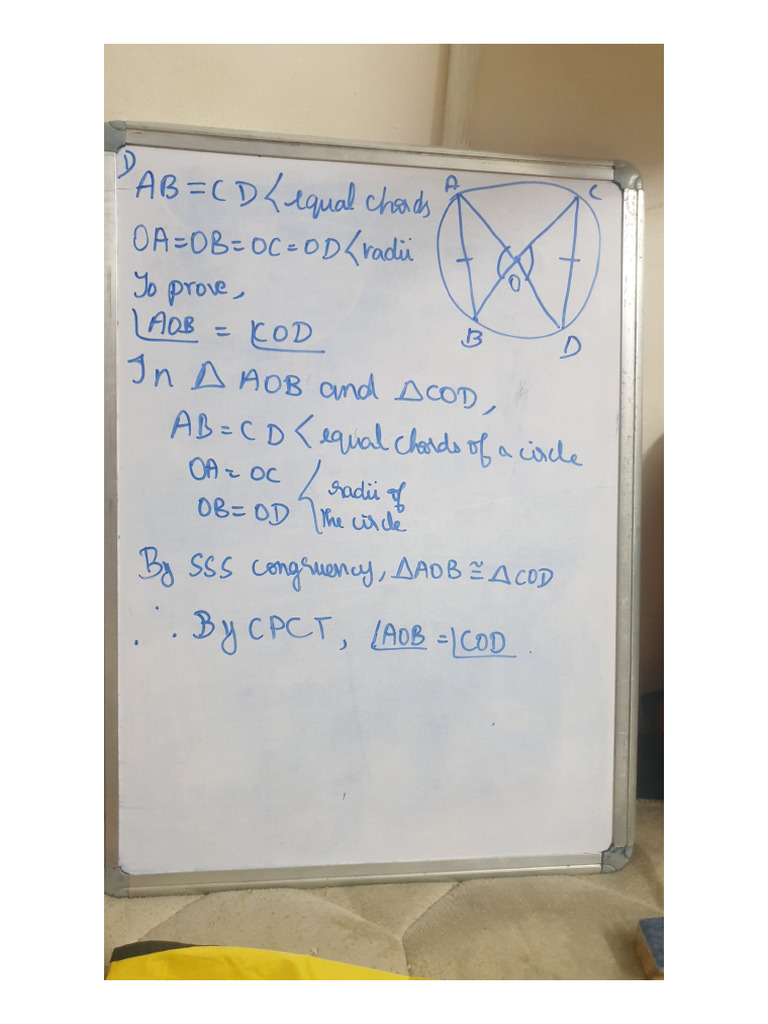 1)
AB = CD < equal chords
OA = OB = OC = OD < radii
To prove,
∠AOB = ∠COD
A
C
O
B
D
In △ AOB and △COD,
AB = CD < equal chords of a circle
OA = OC
OB = OD
< radii of
the circle
By SSS congruency, △AOB ≅ △COD
∴ By CPCT, ∠AOB = ∠COD.